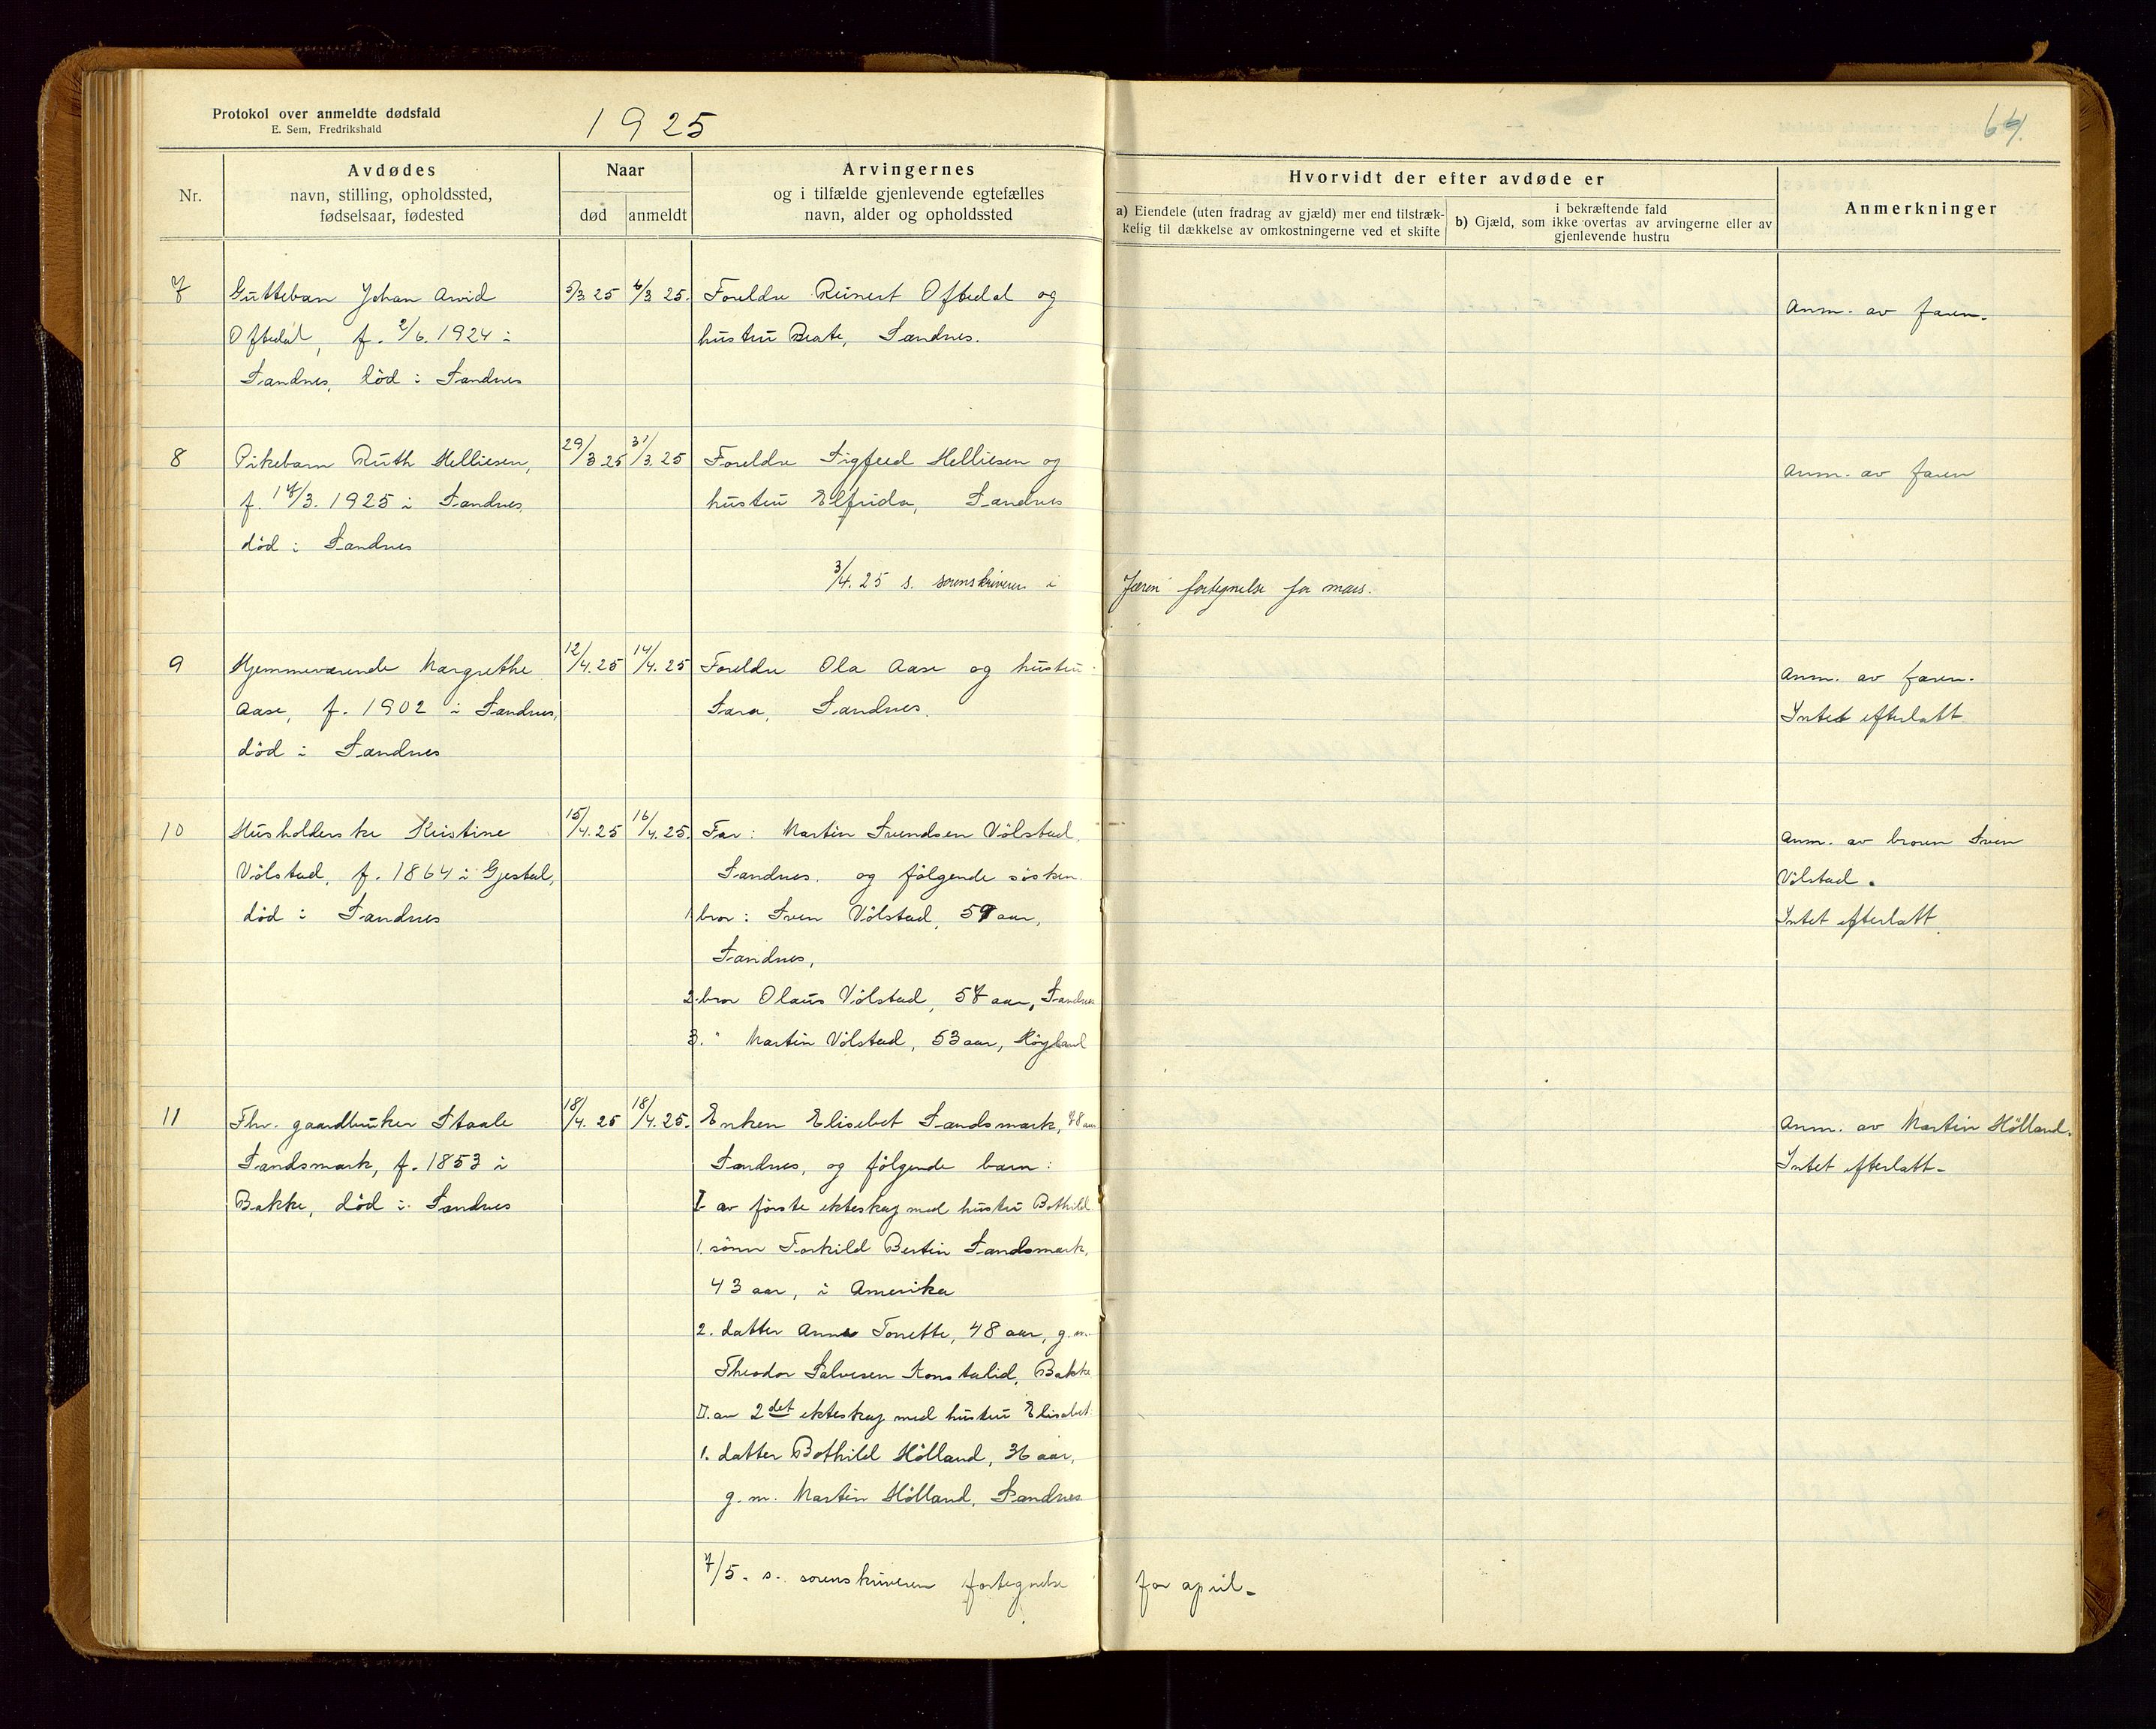 Protokol over anmeldte dødsfald
E. Sem, Fredrikshald
1925
64.
Nr.
Avdødes
navn, stilling, opholdssted,
fødselsaar, fødested
Naar
død
anmeldt
Arvingernes
og i tilfælde gjenlevende egtefælles
navn, alder og opholdssted
Hvorvidt der efter avdøde er
a) Eiendele (uten fradrag av gjæld) mer end tilstræk-
kelig til dækkelse av omkostningerne ved et skifte
i bekræftende fald
b) Gjæld, som ikke overtas av arvingerne eller av
gjenlevende hustru
Anmerkninger
7
Guttebarn Johan Arvid
Oftedal, f. 2/6. 1924 i
Sandnes, död i Sandnes
5/3 25
6/3 25.
Foreldre Reinert Oftedal og
hustru Beate, Sandnes.
Anm. av faren.
8
Pikebarn Ruth Helliesen,
f. 17/3. 1925 i Sandnes,
död i Sandnes
29/3 25
31/3. 25
Foreldre Sigfred Helliesen og
hustru Elfrida, Sandnes
Anm. av faren
3/4. 25 s. sorenskriveren i Jæren fortegnelse for mars.
9
Hjemmeværende Margrethe
Aase, f. 1902 i Sandnes,
död i Sandnes
12/4. 25
14/4. 25
Foreldre Ola Aase og hustru
Sara, Sandnes.
Anm. av faren.
Intet efterlatt
10
Husholderske Kristine
Völstad, f. 1864 i Gjestal,
död i Sandnes
15/4. 25
16/4. 25.
Far: Martin Svendsen Völstad,
Sandnes. og fölgende sösken.
1 bror: Sven Völstad, 59 aar,
Sandnes,
2. bror Olaus Völstad, 57 aar, Sandnes
3. " Martin Völstad, 53 aar, Röyland
Anm. av broren Sven
Völstad.
Intet efterlatt.
11
Fhv. gaardbruker Staale
Sandsmark, f. 1853 i
Bakke, död i Sandnes
18/4. 25
18/4. 25.
Enken Elisebet Sandsmark, 78 aar
Sandnes, og fölgende barn:
I av förste ekteskap med hustru Bothild
1. sönn Torkild Bertin Sandsmark,
43 aar, i Amerika
2. datter Anna Tonette, 48 aar, g. m.
Theodor Salvesen Konstalid, Bakke
II. av 2det ekteskap med hustru Elisabet
1. datter Bothild Hölland, 36 aar,
g. m. Martin Hölland, Sandnes
Anm. av Martin Hölland.
Intet efterlatt.
7/5. s. sorenskriveren fortegnelse for april.